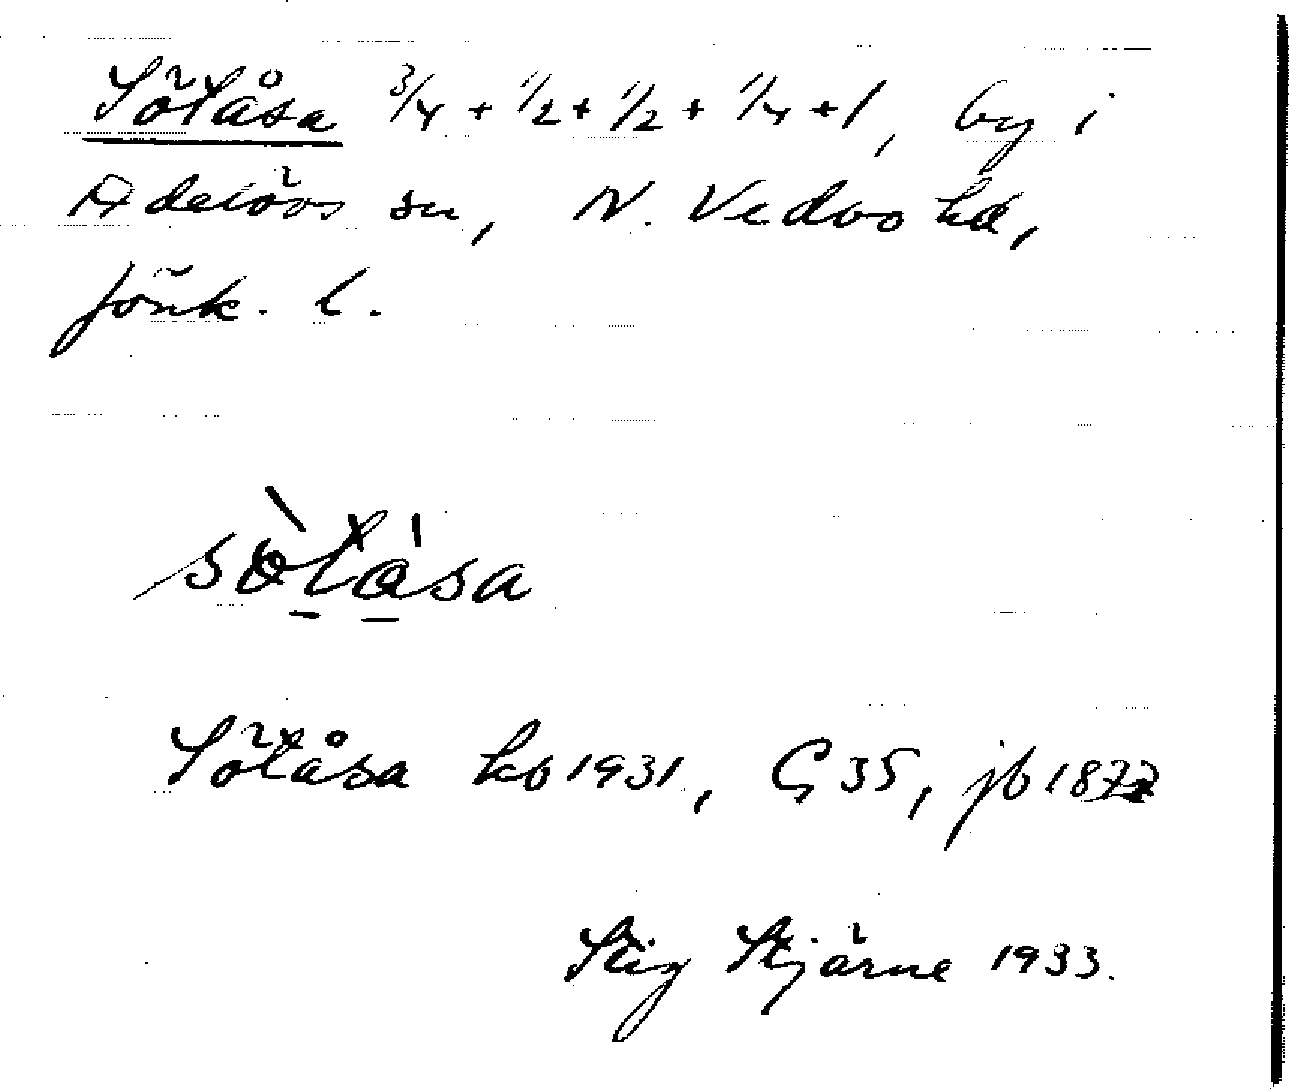 Sötåsa 3/4 + 1/2 + 1/2 + 1/4 + 1, by i
Adelövs sn, N. Vedbo hd,
Jönk. l.
sòtåsa
Sötåsa kb 1931, G 35, jb 1877
Stig Stjärne 1933.